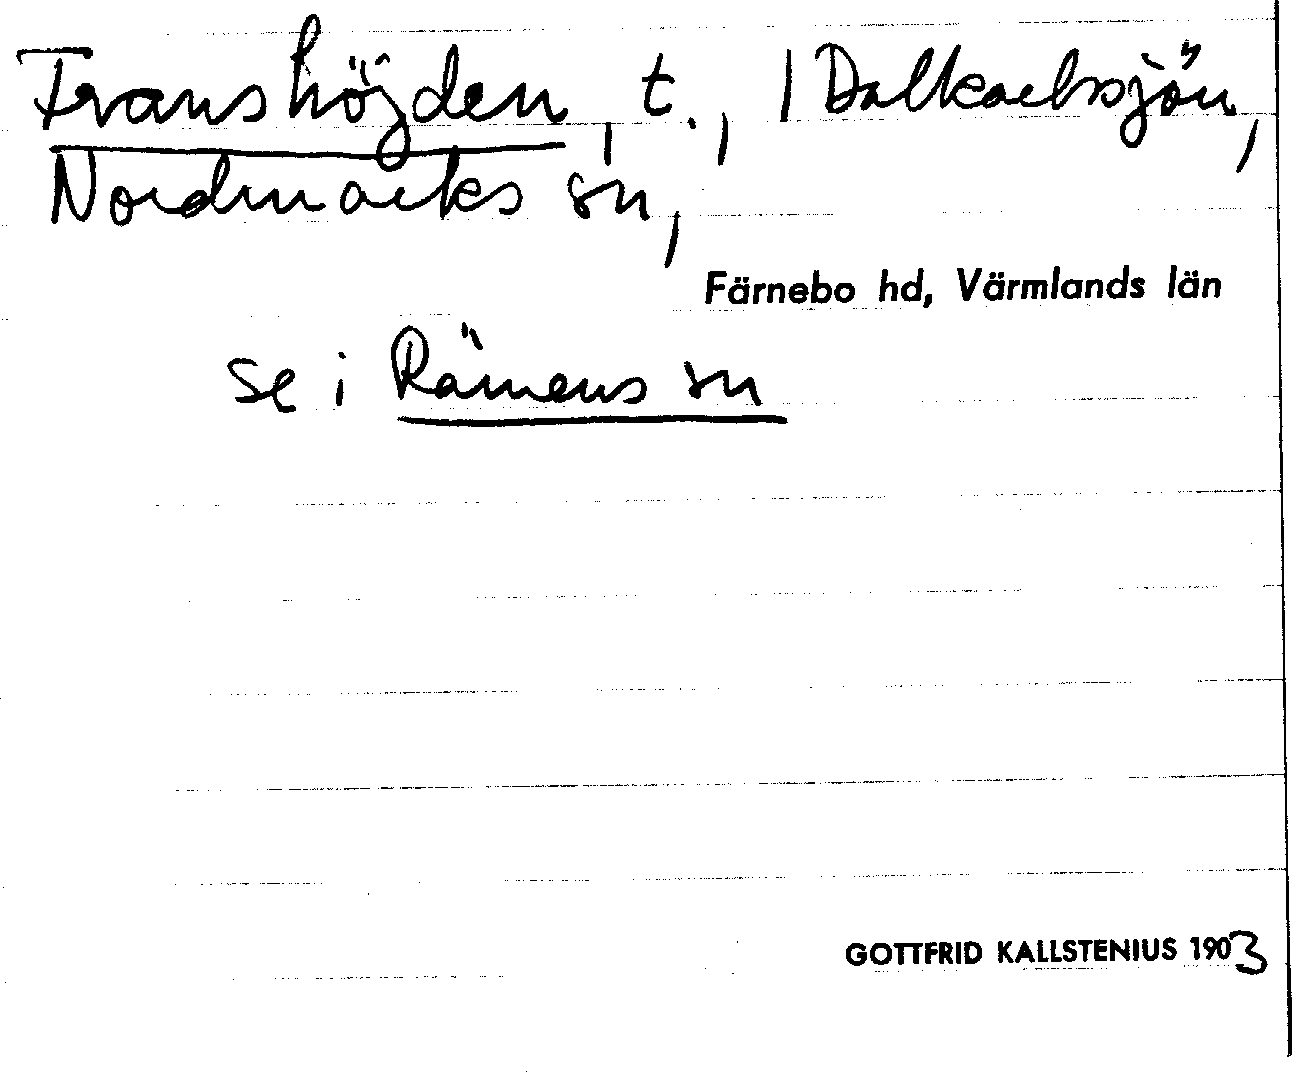 Franshöjden, t., / Dalkarlssjön,
Nordmarks sn,
Färnebo hd, Värmlands län
se i Rämens sn
GOTTFRID KALLSTENIUS 1903